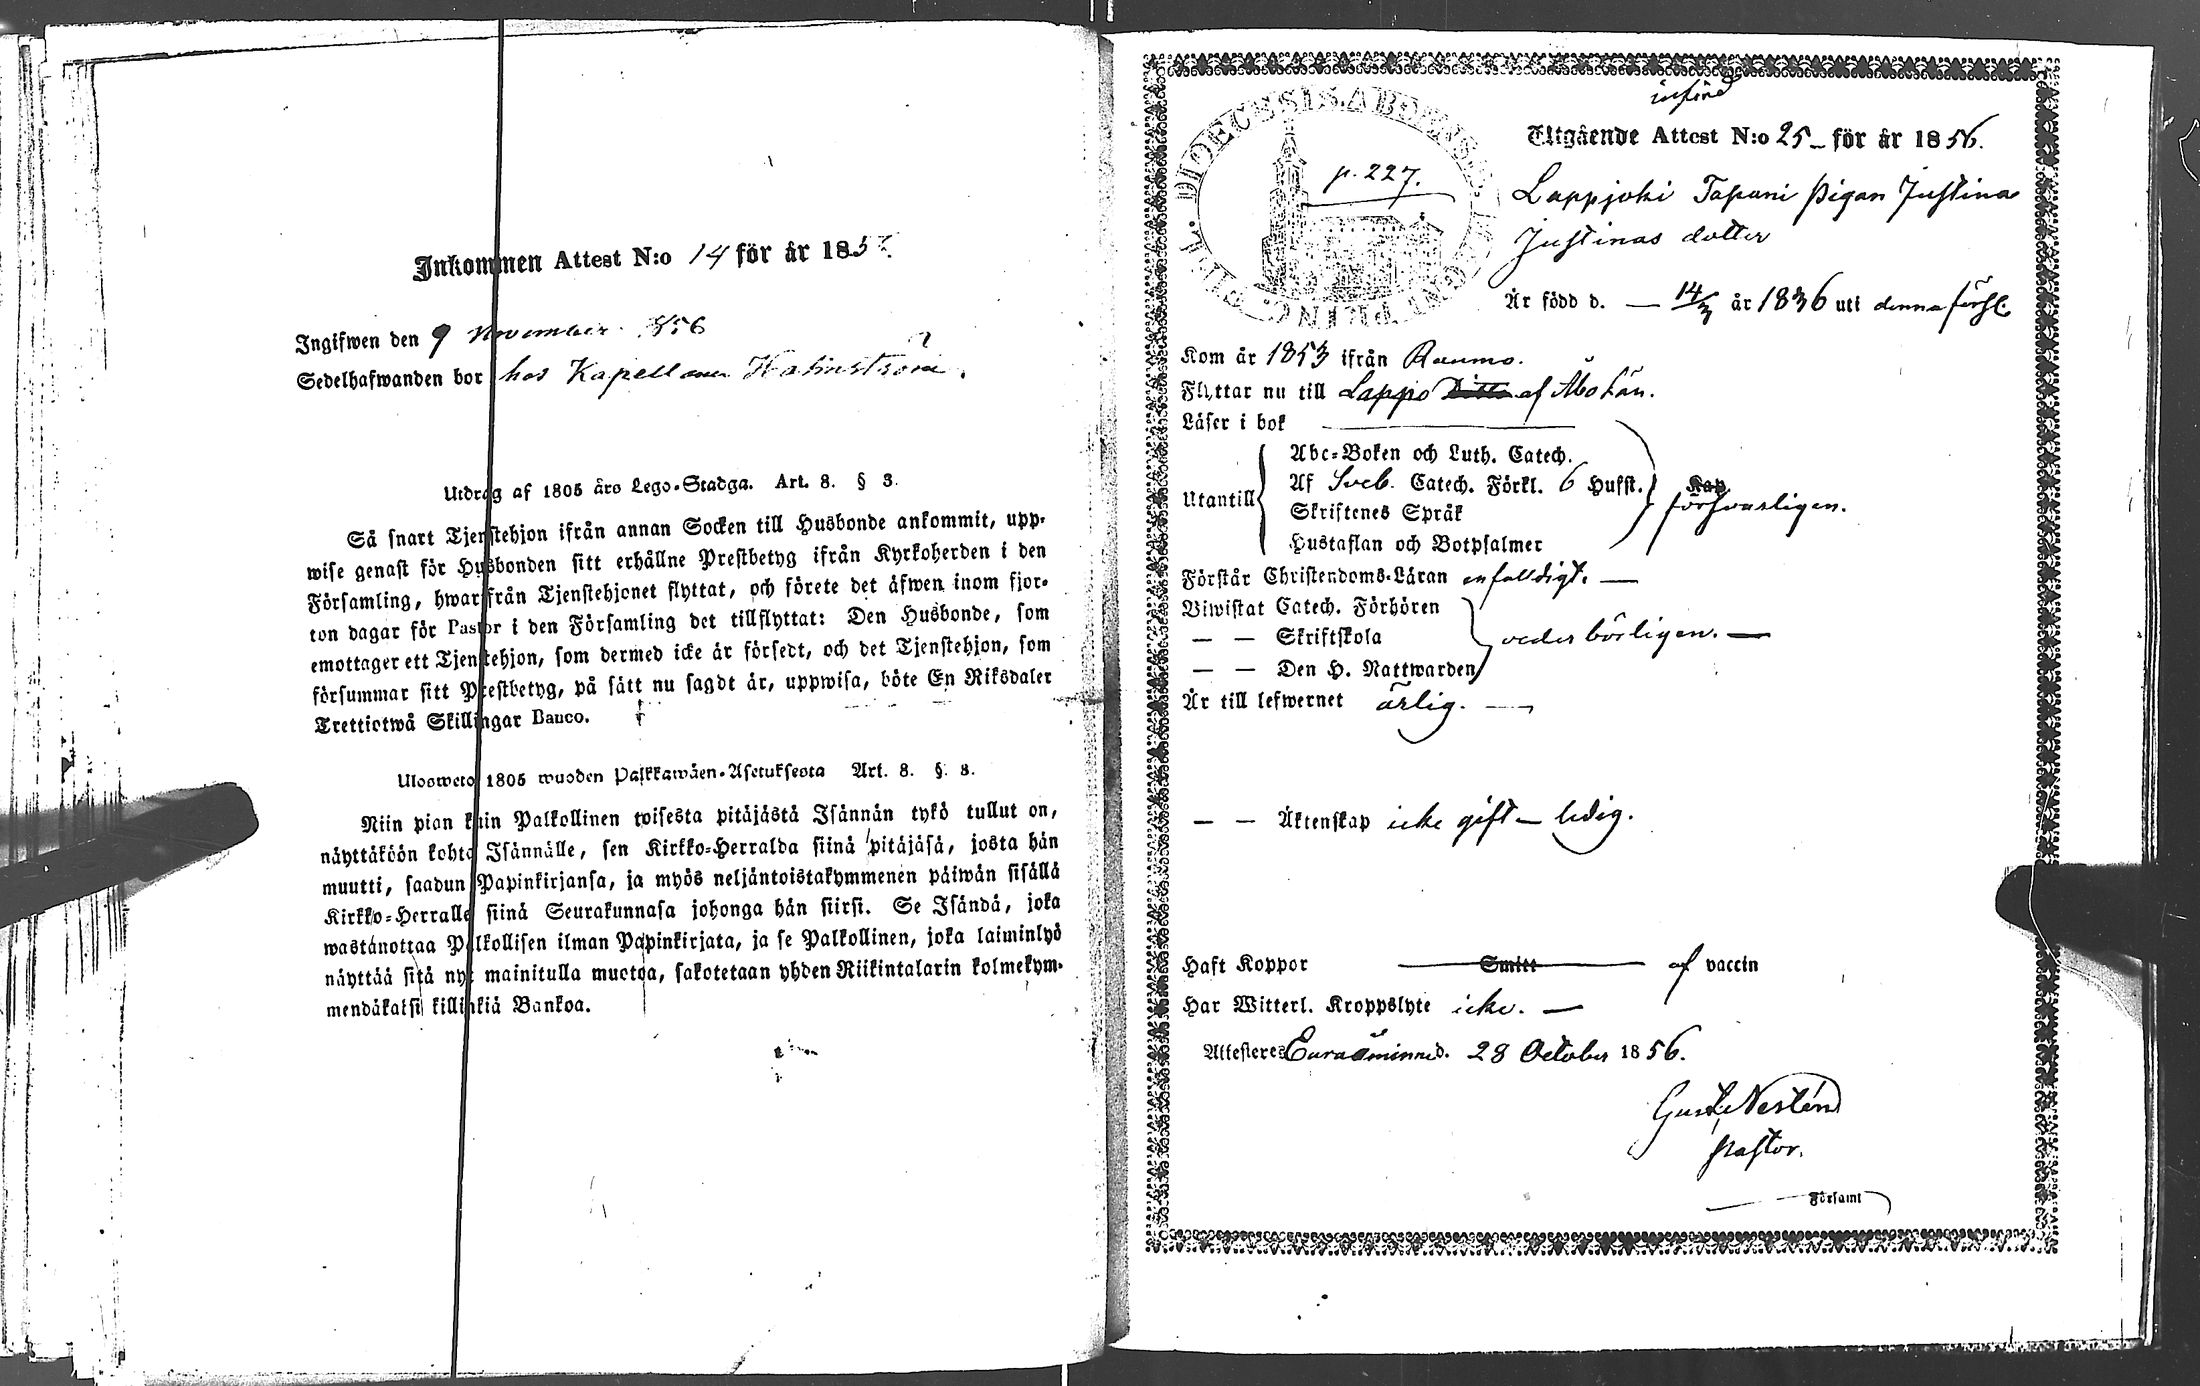 Inkommen Attest N:o 14 för år 185
Ingifwen den 9 November 1856
Sedelhafwanden bor hos Kapellanen
Utdrag af 1805 års Lego-Stadga. Art. 8. § 3.
Så snart Tjenstehjon ifrån annan Socken till Husbonde ankommit, upp-
wise genast för Husbonden sitt erhållne Prestbetyg ifrån Kyrkoherden i den
Församling, hwarifrån Tjenstehjonet flyttat, och förete det äfwen inom fjor-
ton dagar för Pastor i den Församling det tillflyttat: Den Husbonde, som
emottager ett Tjenstehjon, som dermed icke är försedt, och det Tjenstehjon, som
försummar sitt Prestbetyg, på sätt nu sagdt är, uppwisa, böte En Riksdaler
Trettiotwå Skillingar Banco.
Ulosweto 1805 wuoden Palkkawäen-Asetuksesta Art. 8. §. 3.
Niin pian kuin Palkollinen toisesta pitäjästä Isännän tykö tullut on,
näyttäköön kohta Isännälle, sen Kirkko-Herralda siinä pitäjäsä, josta hän
muutti, saadun Papinkirjansa, ja myös neljäntoistakymmenen päiwän sisällä
Kirkko-Herralle siinä Seurakunnasa johonga hän siirsi. Se Isändä, joka
wastanottaa Palkollisen ilman Papinkirjata, ja se Palkollinen, joka laiminlyö
näyttää sitä nyt mainitulla muotoa, sakotetaan yhden Riikintalarin kolmekym-
mendäkaksi killinkiä Bankoa.
införd
SIGILL. DIOECESIS. ABOENSIS.
p. 227.
Utgående Attest N:o 25 - för år 1856.
Lappjoki Tapani Pigan Justina
Justinas dotter
Är född d. — 14/3 år 1836 uti denna förs.
Kom år 1853 ifrån Raumo.
Flyttar nu till Lappo af Åbo Län.
Läser i bok
Utantill
Abc-Boken och Luth. Catech.
Af Sveb. Catech. Förkl. 6 Hufst.
Skriftenes Språk
Hustaflan och Botpsalmer
Kap.
försvarligen.
Förstår Christendoms-Läran enfaldigt. —
Biwistat Catech. Förhören
— — Skriftskola
— — Den H. Nattwarden
vederbörligen. —
Är till lefwernet ärlig. —
— — Äktenskap icke gift — ledig.
Haft Koppor Smitt af vaccin
Har Witterl. Kroppslyte icke. —
Attesteres Euraåminne d. 28 October 1856.
Gust. Nestén
Pastor.
Församl